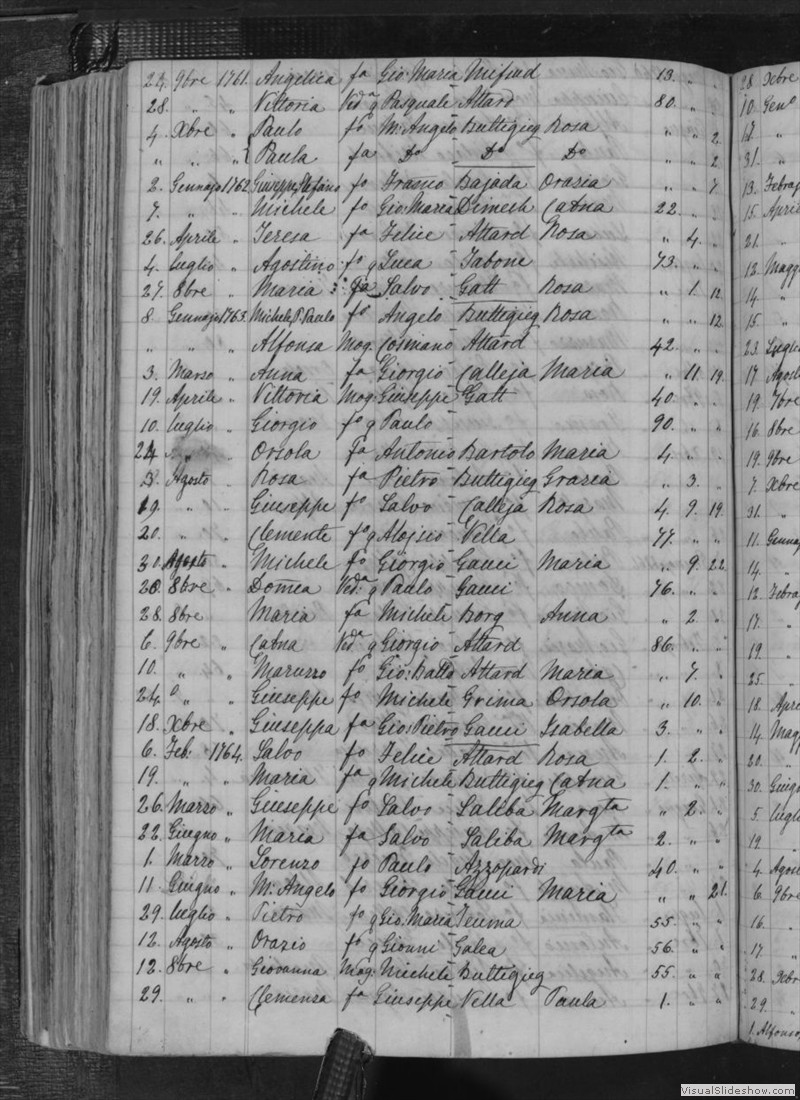 24. 9bre 1761. Angelica fa Gio: Maria Mifsud 13. " "
28. " " Vittoria Ved.a q Pasquale Attard 80. " "
4 Xbre " Paulo fo M: Angelo Buttigieg Rosa " " 2
" " " Paula fa Do Do Do " " 2
2. Gennajo 1762 Giuseppe Stefano fo Grazio Bajada Orazia " " 7
7. " " Michele fo Gio: Maria Dimech Catna 22. " "
26. Aprile " Teresa fa Felice Attard Rosa " 4. "
4. Luglio " Agostino fo q Luca Tabone 73. " "
27. 8bre " Maria fa Salvo Gatt Rosa " 1. 12
8. Gennajo 1763. Michele P. Paulo fo Angelo Buttigieg Rosa " " 12.
" " " Alfonsa Mog. Cosmano Attard 42. " "
3. Marzo " Anna fa Giorgio Calleja Maria " 11. 19.
19. Aprile " Vittoria Mog: Giuseppe Gatt 40. " "
10. Luglio " Giorgio fo q Paulo 90. " "
24 " " Orsola fa Antonio Bartolo Maria 4. " "
Agosto " Rosa fa Pietro Buttigieg Grazia " 3. "
19. " " Giuseppe fo Salvo Calleja Rosa 4. 9. 19.
20. " " Clemente fo q Aloisio Vella 77. " "
30. Agosto " Michele fo Giorgio Gauci Maria " 9. 22.
20. 8bre " Domea Ved.a q Paulo Gauci 76. " "
28. 8bre Maria fa Michele Borg Anna " 2. "
6. 9bre " Catna Ved.a q Giorgio Attard 86. " "
10. " " Maruzzo fo Gio: Batta Attard Maria " 7. "
24. " " Giuseppe fo Michele Grima Orsola " 10. "
18. Xbre " Giuseppa fa Gio: Pietro Gauci Isabella 3. " "
6. Feb: 1764. Salvo fo Felice Attard Rosa 1. 2. "
19. " " Maria fa q Michele Buttigieg Catna 1. " "
26. Marzo " Giuseppe fo Salvo Saliba Margta " 2. "
22. Giugno " Maria fa Salvo Saliba Margta 2. " "
1. Marzo " Lorenzo fo Paulo Azzopardi 40. " "
11. Giugno " M: Angelo fo Giorgio Gauci Maria " " 21.
29. Luglio " Pietro fo q Gio: Maria Teuma 55. " "
12. Agosto " Orazio fo q Gionni Galea 56. " "
12. 8bre " Giovanna Mog: Michele Buttigieg 55. " "
29. " " Clemenza fa Giuseppe Vella Paula 1. " "
28 Xbre
10. Geno
17. "
31. "
13. Febraj
15. Aprile
21. "
12. Maggi
14. "
15. "
23. Luglio
17 Agosto
19. 7bre
16. 8bre
19. 9bre
7. Xbre
31. "
11. Gennaj
14. "
12. Febraj
17. "
19. "
25. "
18. April
14. Magg
20. "
30. Giugn
5. Luglio
19. "
4. Agost
6. 9bre
16. "
17. "
28. Xbre
29. "
1. Alfonso
VisualSlideshow.com